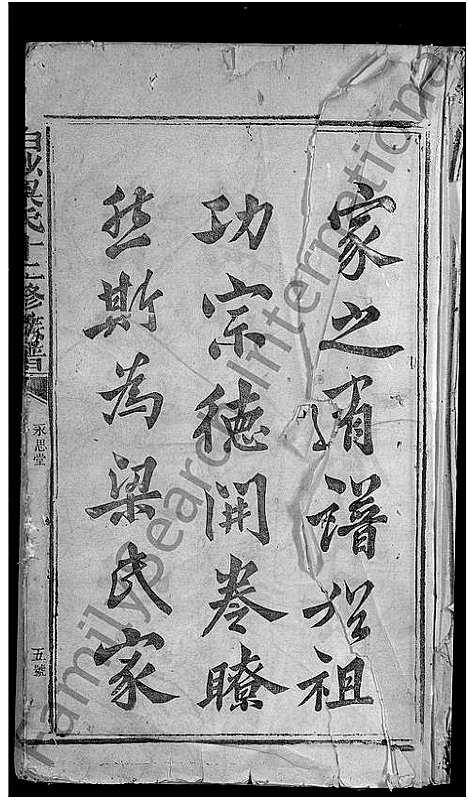 家之有譜從祖
功宗德開卷瞭
然斯為梁氏家
修族譜
永思堂
五號
FamilySearch International